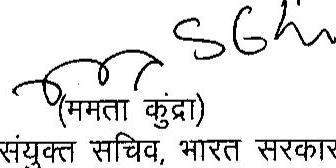 (ममता कुंद्रा)
संयुक्त सचिव, भारत सरकार